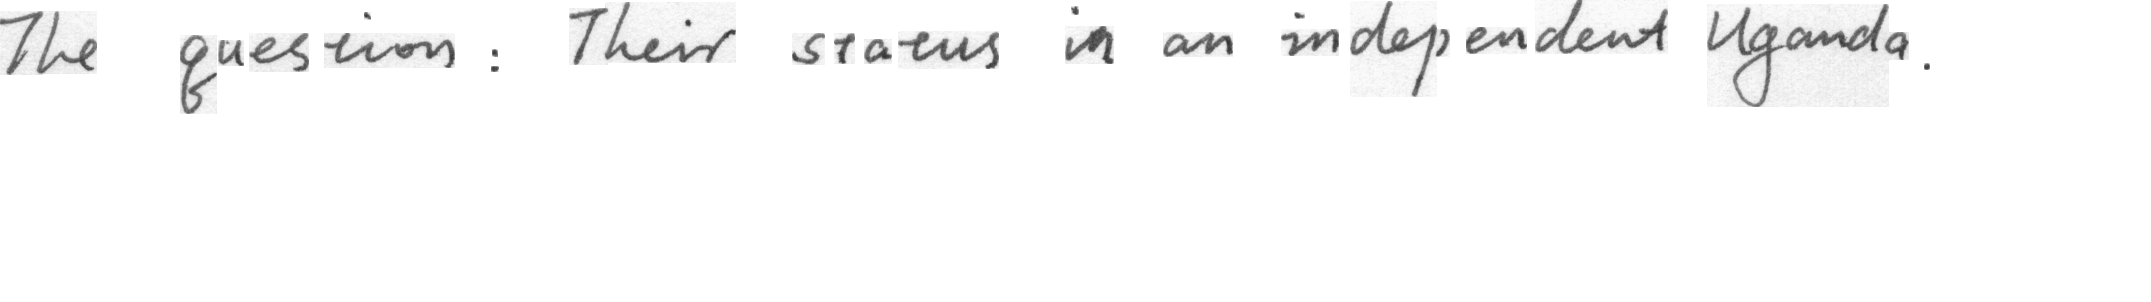 The question: Their status in an independent Uganda.